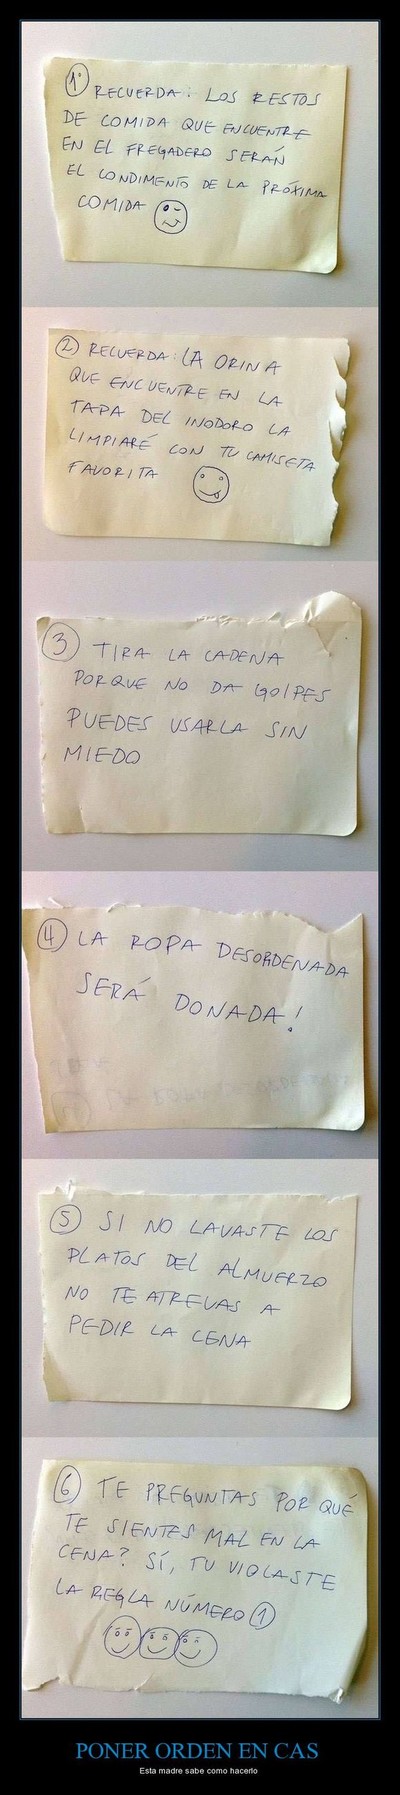 1º RECUERDA: LOS RESTOS
DE COMIDA QUE ENCUENTRE
EN EL FREGADERO SERÁN
EL CONDIMENTO DE LA PRÓXIMA
COMIDA
2 RECUERDA: LA ORINA
QUE ENCUENTRE EN LA
TAPA DEL INODORO LA
LIMPIARÉ CON TU CAMISETA
FAVORITA
3 TIRA LA CADENA
PORQUE NO DA GOLPES
PUEDES USARLA SIN
MIEDO
4 LA ROPA DESORDENADA
SERÁ DONADA!
5 SI NO LAVASTE LOS
PLATOS DEL ALMUERZO
NO TE ATREVAS A
PEDIR LA CENA
6 TE PREGUNTAS POR QUÉ
TE SIENTES MAL EN LA
CENA? SÍ, TU VIOLASTE
LA REGLA NÚMERO 1
PONER ORDEN EN CAS
Esta madre sabe como hacerlo